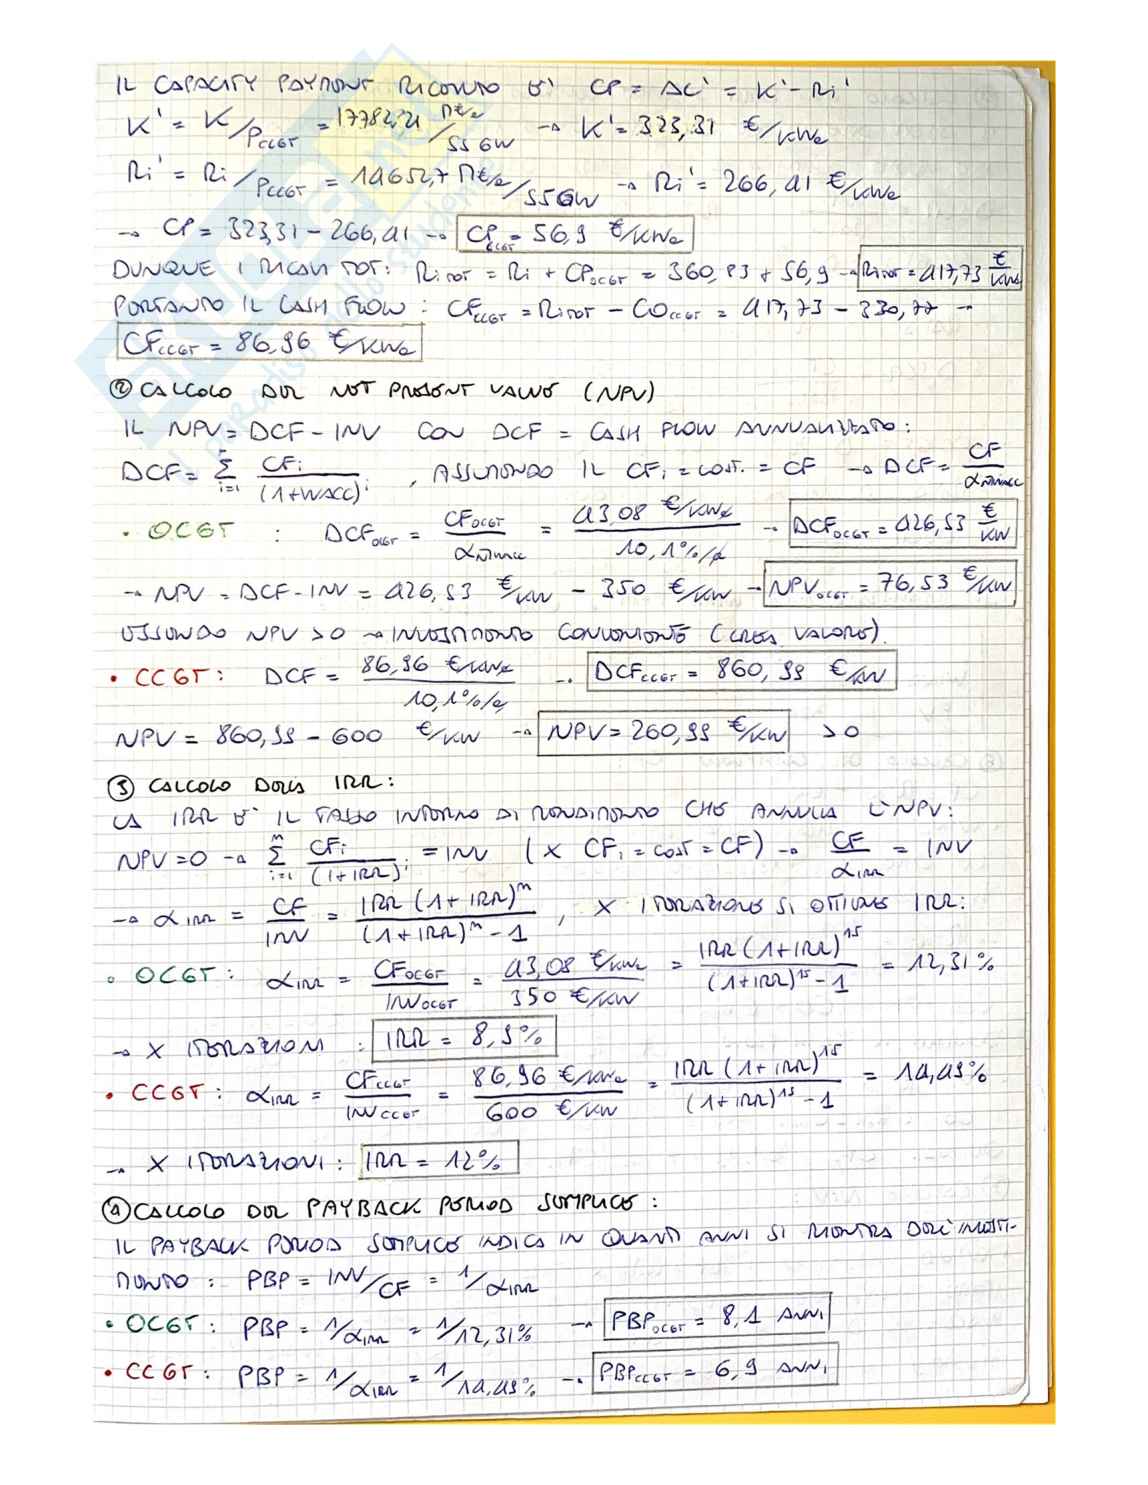 IL CAPACITY PAYMENT RICHIESTO È' CP = ΔC' = K' - Ri'
K' = K/PCCGT = 17782,21 M€/a / 55 GW → K' = 323,31 €/kWe
Ri' = Ri/PCCGT = 14652,7 M€/a / 55 GW → Ri' = 266,41 €/kWe
→ CP = 323,31 - 266,41 → CPCCGT = 56,9 €/kWe
DUNQUE I RICAVI TOT: RiTOT = Ri + CPCCGT = 360,83 + 56,9 → RiTOT = 417,73 €/kWe
PORTANDO IL CASH FLOW: CFCCGT = RiTOT - COCCGT = 417,73 - 330,77 →
CFCCGT = 86,96 €/kWe
② CALCOLO DEL NET PRESENT VALUE (NPV)
IL NPV = DCF - INV CON DCF = CASH FLOW ANNUALIZZATO:
DCF = Σ i=1 CFi / (1+WACC)^i , ASSUMENDO IL CFi = COST. = CF → DCF = CF / α
• OCGT : DCFOCGT = CFOCGT / α = 43,08 €/kWe / 10,1%/a → DCFOCGT = 426,53 €/kW
→ NPV = DCF - INV = 426,53 €/kW - 350 €/kW → NPVOCGT = 76,53 €/kW
ESSENDO NPV > 0 → INVESTIMENTO CONVENIENTE (CREA VALORE).
• CCGT: DCF = 86,96 €/kWe / 10,1%/a → DCFCCGT = 860,99 €/kW
NPV = 860,99 - 600 €/kW → NPV = 260,99 €/kW > 0
③ CALCOLO DELLA IRR:
LA IRR È' IL TASSO INTERNO DI RENDIMENTO CHE ANNULLA L'NPV:
NPV = 0 → Σ i=1 n CFi / (1+IRR)^i = INV (X CFi = COST = CF) → CF / αIRR = INV
→ αIRR = CF / INV = IRR (1+IRR)^n / (1+IRR)^n - 1 , X ITERAZIONE SI OTTIENE IRR:
• OCGT: αIRR = CFOCGT / INVOCGT = 43,08 €/kWe / 350 €/kW = IRR (1+IRR)^15 / (1+IRR)^15 - 1 = 12,31%
→ X ITERAZIONI : IRR = 8,9%
• CCGT: αIRR = CFCCGT / INVCCGT = 86,96 €/kWe / 600 €/kW = IRR (1+IRR)^15 / (1+IRR)^15 - 1 = 14,49%
→ X ITERAZIONI: IRR = 12%
④ CALCOLO DEL PAYBACK PERIOD SEMPLICE:
IL PAYBACK PERIOD SEMPLICE INDICA IN QUANTI ANNI SI RIENTRA DELL'INVESTI-
MENTO: PBP = INV/CF = 1/αIRR
• OCGT: PBP = 1/αIRR = 1/12,31% → PBPOCGT = 8,1 ANNI
• CCGT: PBP = 1/αIRR = 1/14,49% → PBPCCGT = 6,9 ANNI